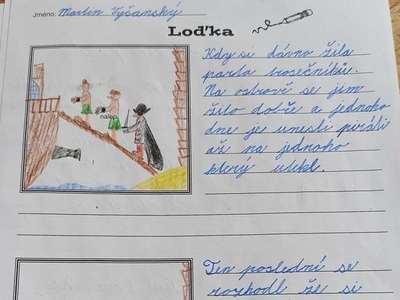 Jméno: Martin Vyšanský
Loďka
Kdysi dávno žila
parta trosečníků.
Na ostrově se jim
žilo dobře a jednoho
dne je unesli piráti
až na jednoho
který utekl.
Ten poslední se
rozhodl že si